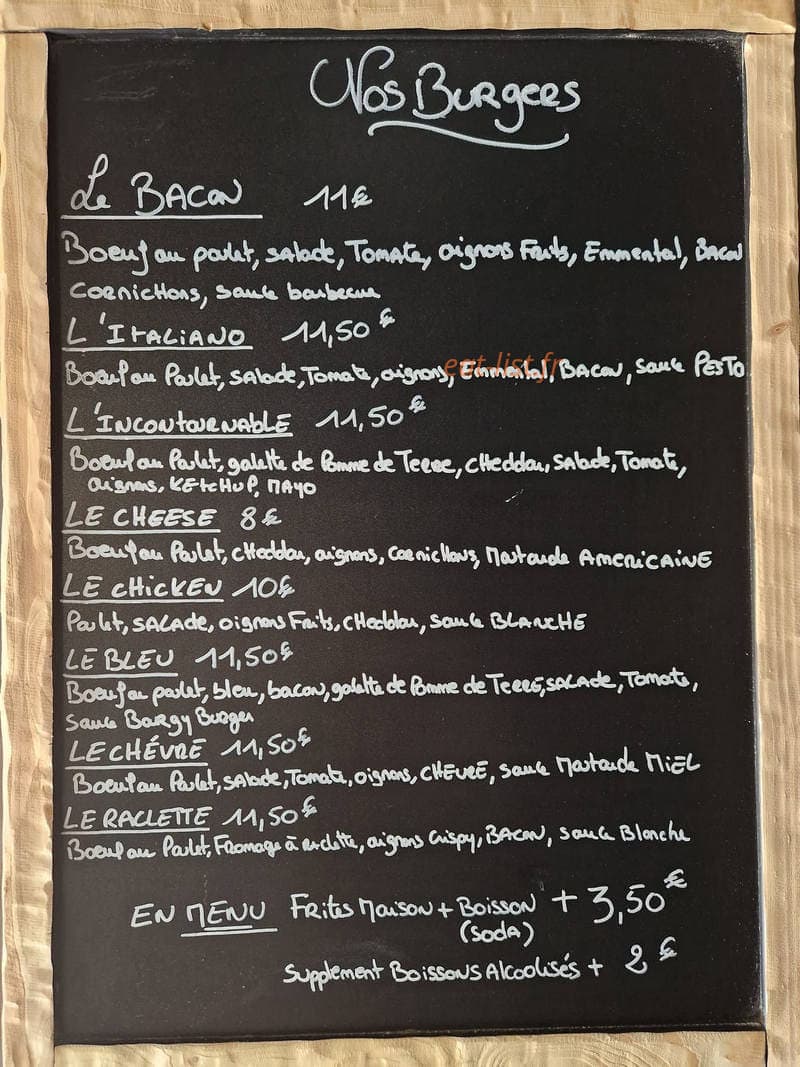 Nos Burgers
Le BACON 11€
Boeuf ou poulet, salade, Tomate, oignons Frits, Emmental, BACON
Cornichons, sauce barbecue
L'ITALIANO 11,50€
Boeuf ou Poulet, salade, Tomate, oignons, Emmental, BACON, sauce PESTO
eat-list.fr
L'INCONTOURNABLE 11,50€
Boeuf ou Poulet, galette de Pomme de Terre, cHeddar, salade, Tomate,
oignons, KETCHUP, MAYO
LE CHEESE 8€
Boeuf ou Poulet, cHeddar, oignons, Cornichons, Moutarde AMERICAINE
LE CHICKEN 10€
Poulet, SALADE, oignons Frits, cHeddar, sauce BLANCHE
LE BLEU 11,50€
Boeuf ou poulet, bleu, bacon, galette de Pomme de Terre, SALADE, Tomate,
sauce Bargy Burger
LE CHÉVRE 11,50€
Boeuf ou Poulet, salade, Tomate, oignons, CHEVRE, sauce Moutarde MIEL
LE RACLETTE 11,50€
Boeuf ou Poulet, Fromage à raclette, oignons Crispy, BACON, sauce Blanche
EN MENU Frites Maison + Boisson + 3,50€
(SODA)
Supplement Boissons Alcoolisés + 2€